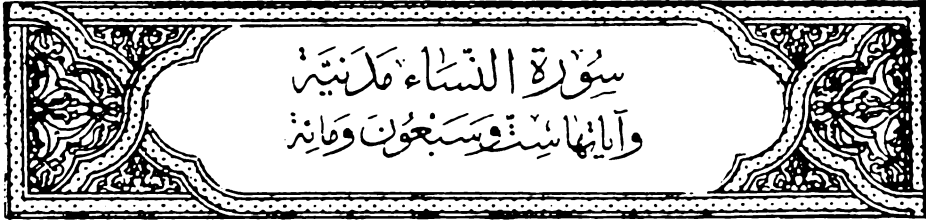 سُورَة النِّسَاء مَدَنيَّة
وآياتها سِتّ وَسَبْعُونَ وَمائة